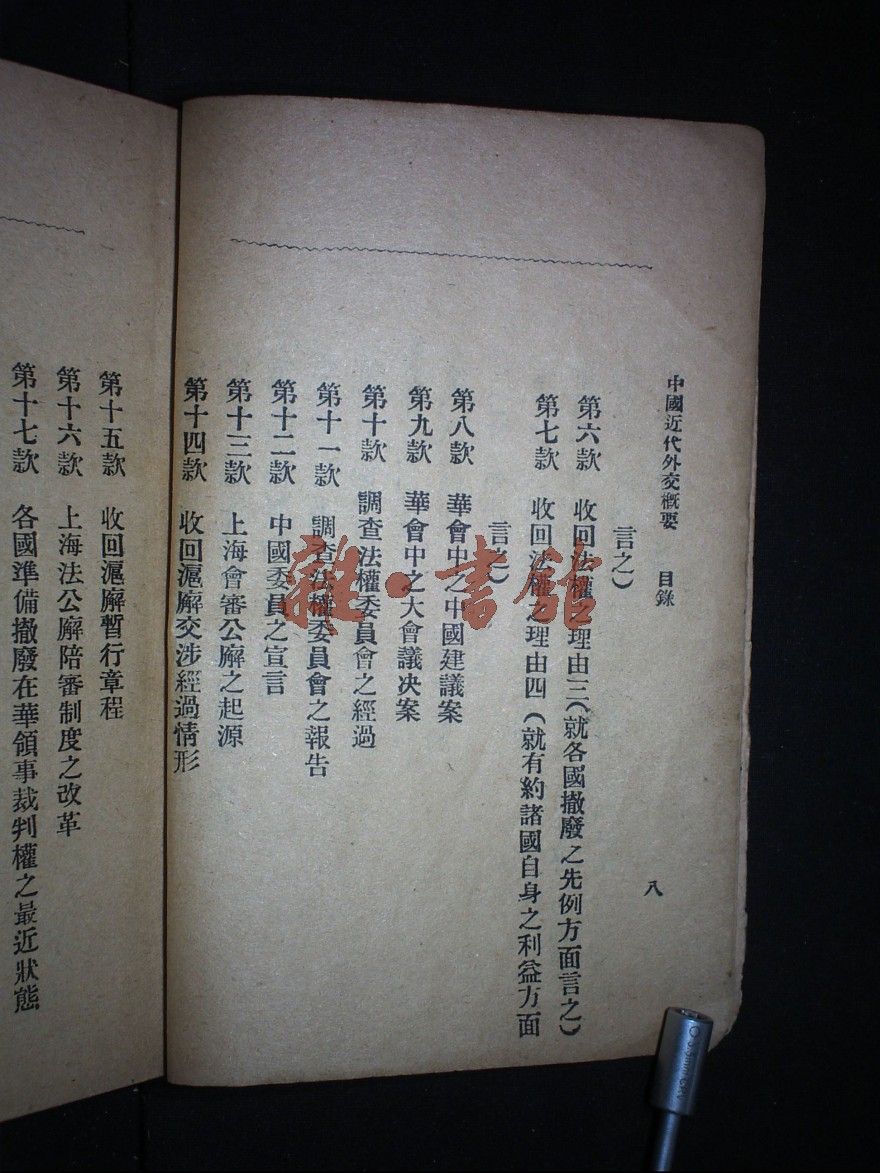 中國近代外交概要　目錄　八
言之）
第六款　收回法權之理由三（就各國撤廢之先例方面言之）
第七款　收回法權之理由四（就有約諸國自身之利益方面
言之）
第八款　華會中之中國建議案
第九款　華會中之大會議决案
第十款　調查法權委員會之經過
第十一款　調查法權委員會之報告
第十二款　中國委員之宣言
第十三款　上海會審公廨之起源
第十四款　收回滬廨交涉經過情形
第十五款　收回滬廨暫行章程
第十六款　上海法公廨陪審制度之改革
第十七款　各國準備撤廢在華領事裁判權之最近狀態
雜·書館